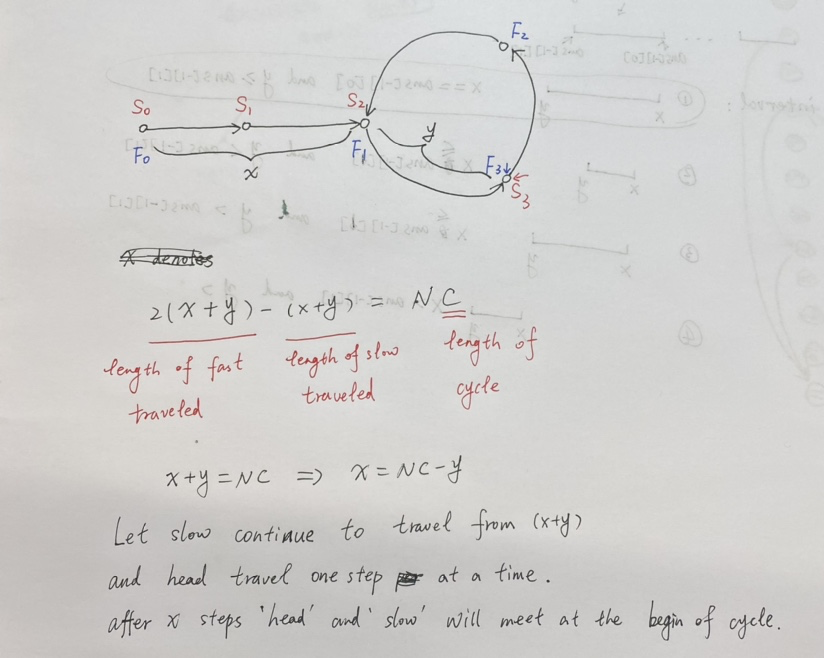 F2
S0 S1 S2
F0 x F1 y F3 S3
x denotes
2(x+y) - (x+y) = NC
length of fast traveled
length of slow traveled
length of cycle
x+y = NC => x = NC-y
Let slow continue to travel from (x+y)
and head travel one step at a time.
after x steps 'head' and 'slow' will meet at the begin of cycle.